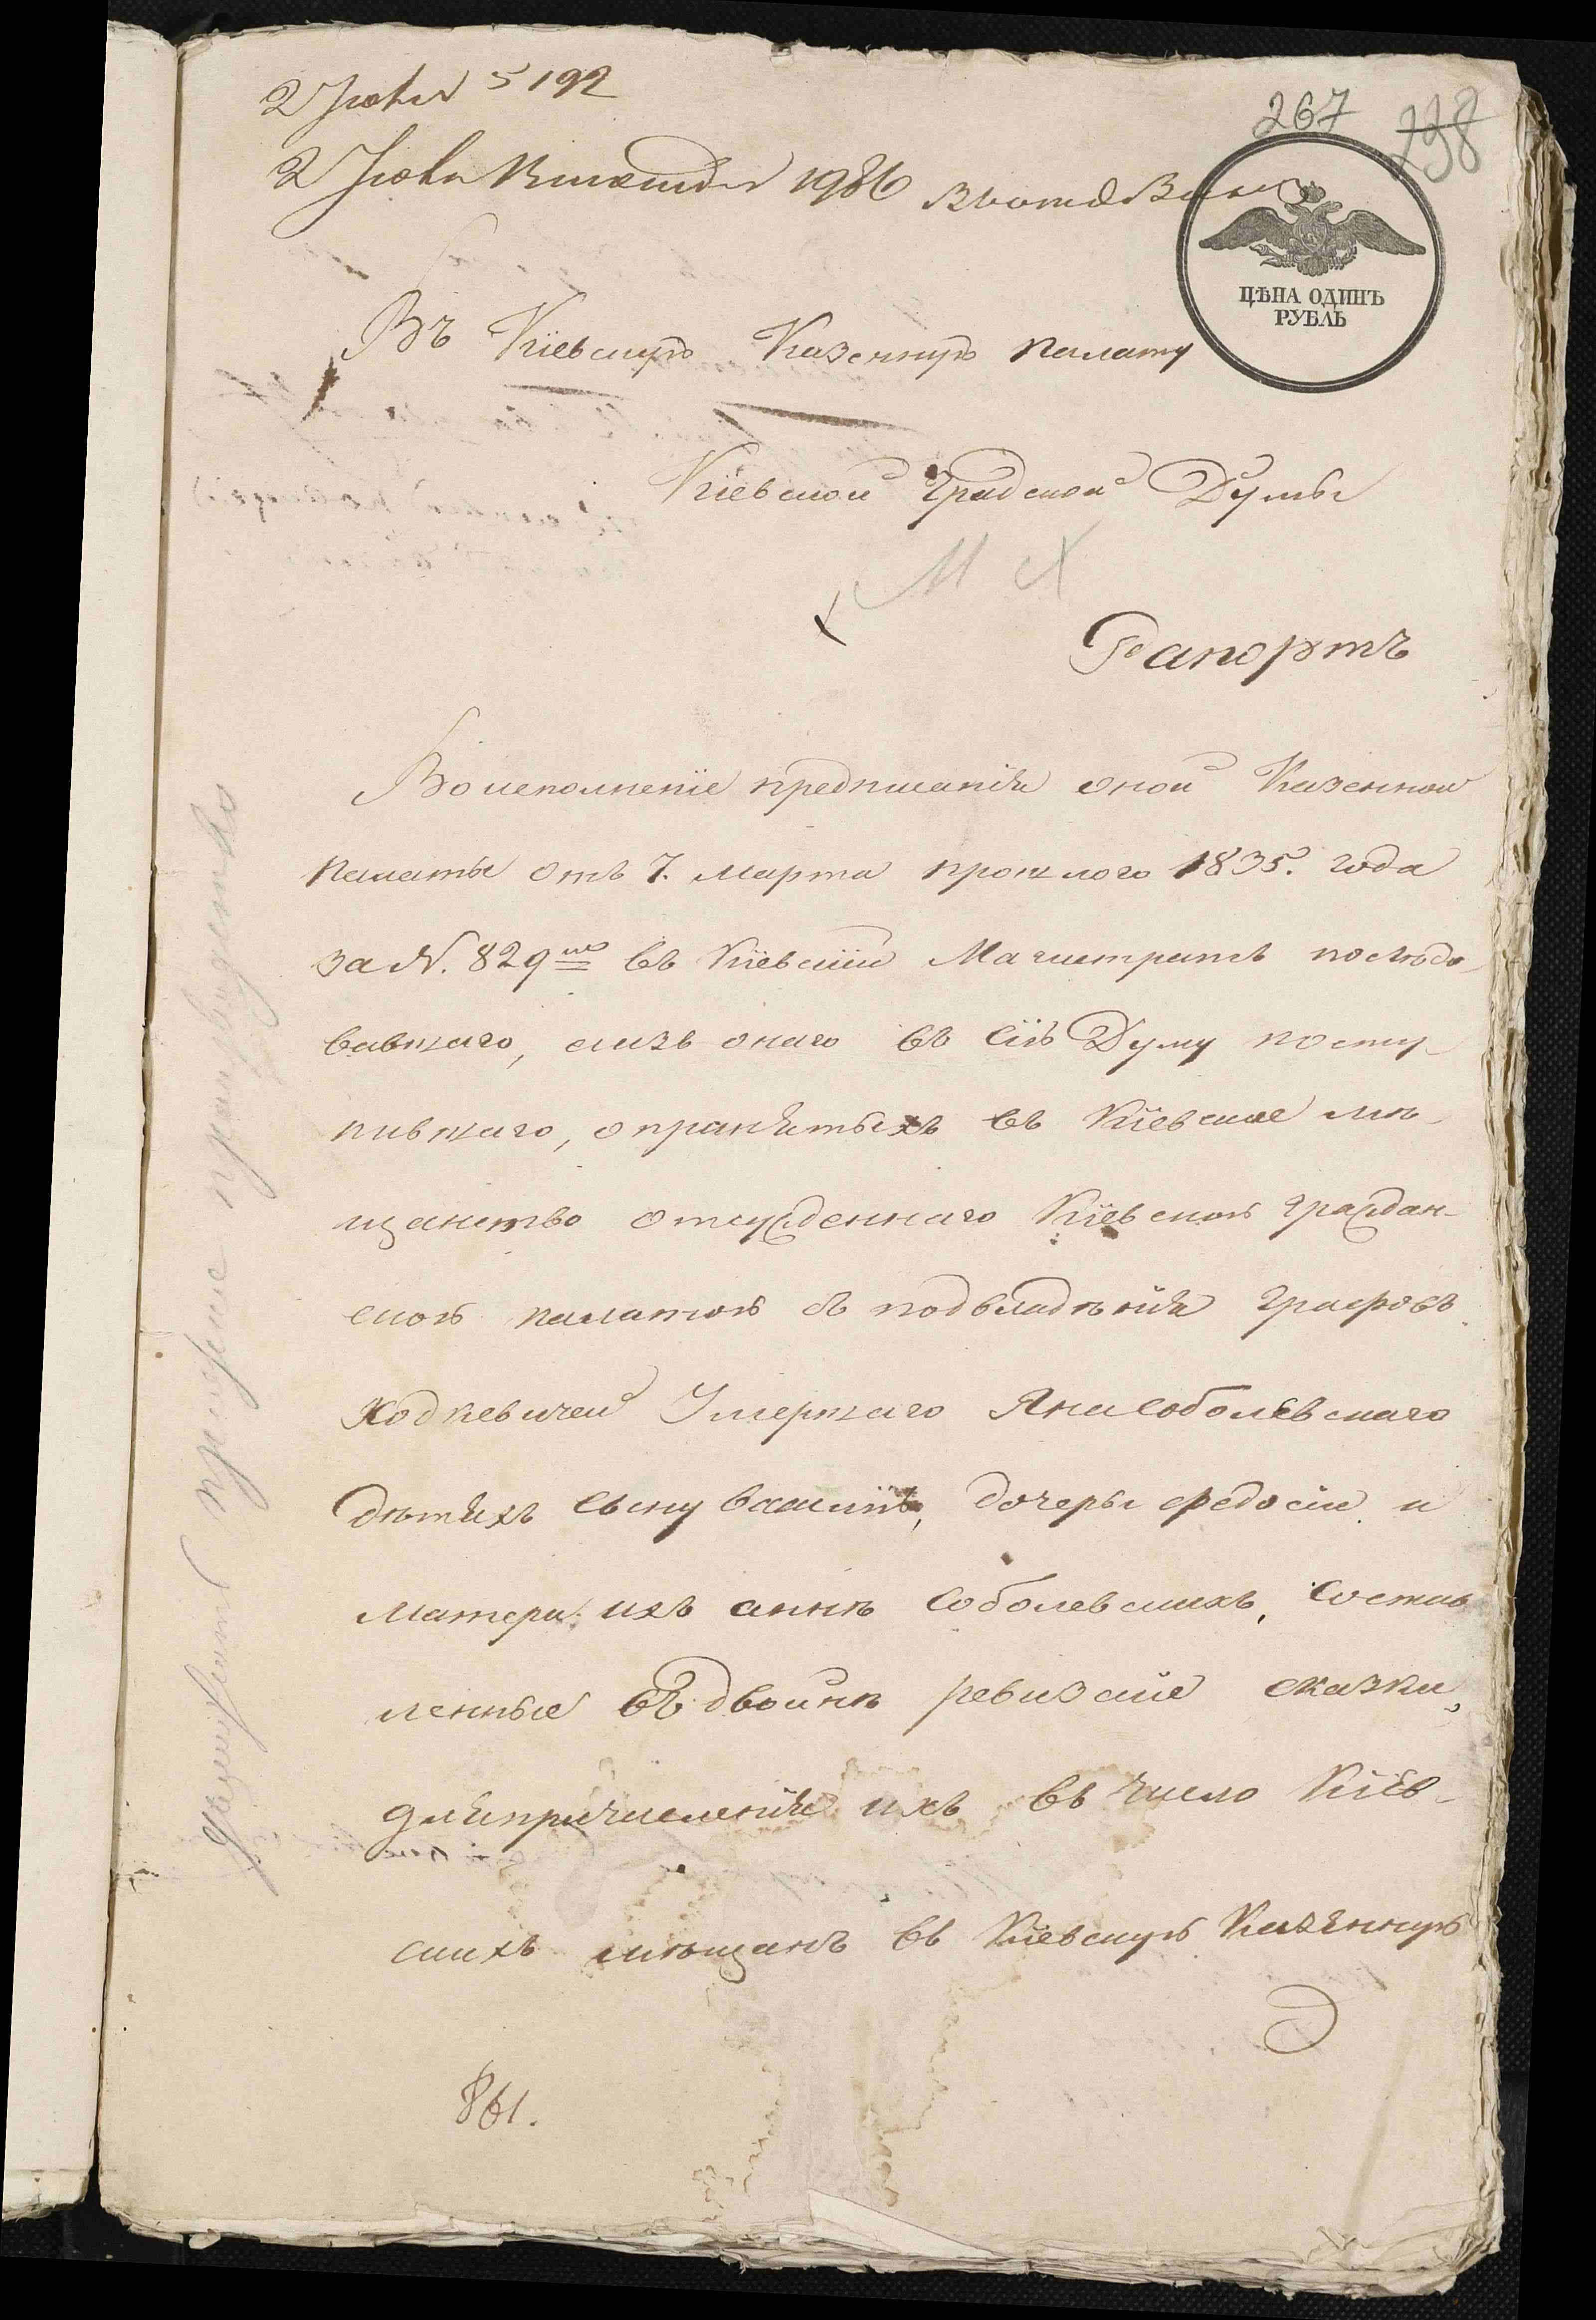 2 Июня 5192
267 238
2 Июня 1986
ЦѢНА ОДИНЪ
РУБЛЬ
Въ Кіевскую Казенную палату
Кіевской Градской Думы
Рапортъ
Во исполненіе предписанія оной Казенной
палаты отъ 7. марта прошлого 1835. года
за N. 829мъ въ Кіевскій Магистратъ послѣдо
вавшаго, а изъ онаго въ сію Думу посту-
пившаго, о принятыхъ въ Кіевское мѣ-
щанство отсужденнаго Кіевскою граждан-
скою палатою съ подвладѣнія графовъ
Ходкевичей Умершаго Яна Соболевскаго
дѣтяхъ сыну Василію, дочеры Федосіи и
матери ихъ аннѣ Соболевскихъ, Состав
ленные въ двойнѣ ревизскіе сказки,
для причисленія ихъ въ число Кіев-
скихъ мѣщанъ въ Кіевскую Казенную
861.